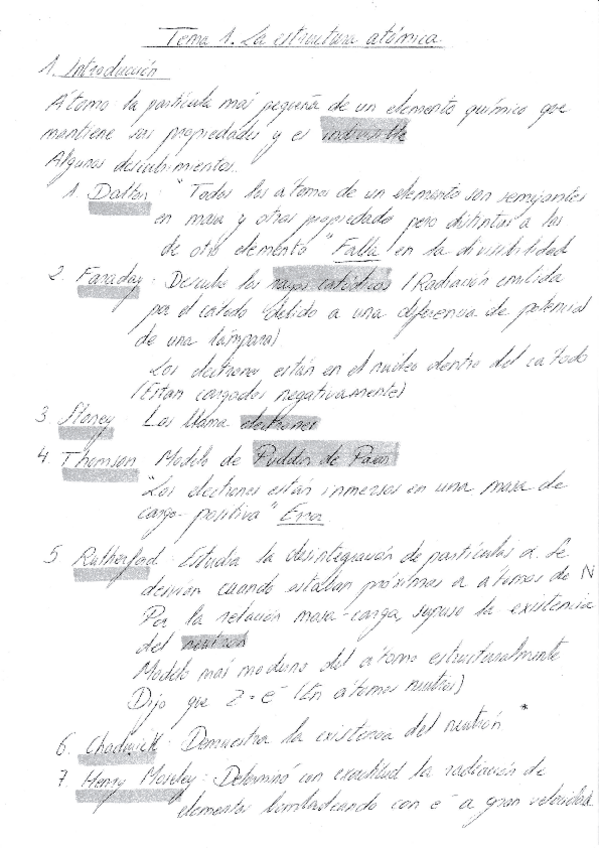 Tema 1. La estructura atómica
1. Introducción
Átomo: la partícula más pequeña de un elemento químico que
mantiene sus propiedades y es indivisible
Algunos descubrimientos.
1. Dalton: "Todos los átomos de un elemento son semejantes
en masa y otras propiedades pero distintos a los
de otro elemento" Falla en la divisibilidad
2. Faraday: Descubre los rayos catódicos (Radiación emitida
por el cátodo debido a una diferencia de potencial
de una lámpara)
Los electrones están en el núcleo dentro del cátodo
(Están cargados negativamente)
3. Stoney: Los llama electrones
4. Thomson: Modelo de Puddin de Pasas
"Los electrones están inmersos en una masa de
carga positiva" Error
5. Rutherford: Estudia la desintegración de partículas α. Se
desvían cuando estaban próximas a átomos de N
Por la relación masa-carga, supuso la existencia
del neutrón
Modelo más moderno del átomo estructuralmente
Dijo que Z = e⁻ (En átomos neutros)
6. Chadwick: Demuestra la existencia del neutrón *
7. Henry Moseley: Determinó con exactitud la radiación de
elementos bombardeando con e⁻ a gran velocidad.